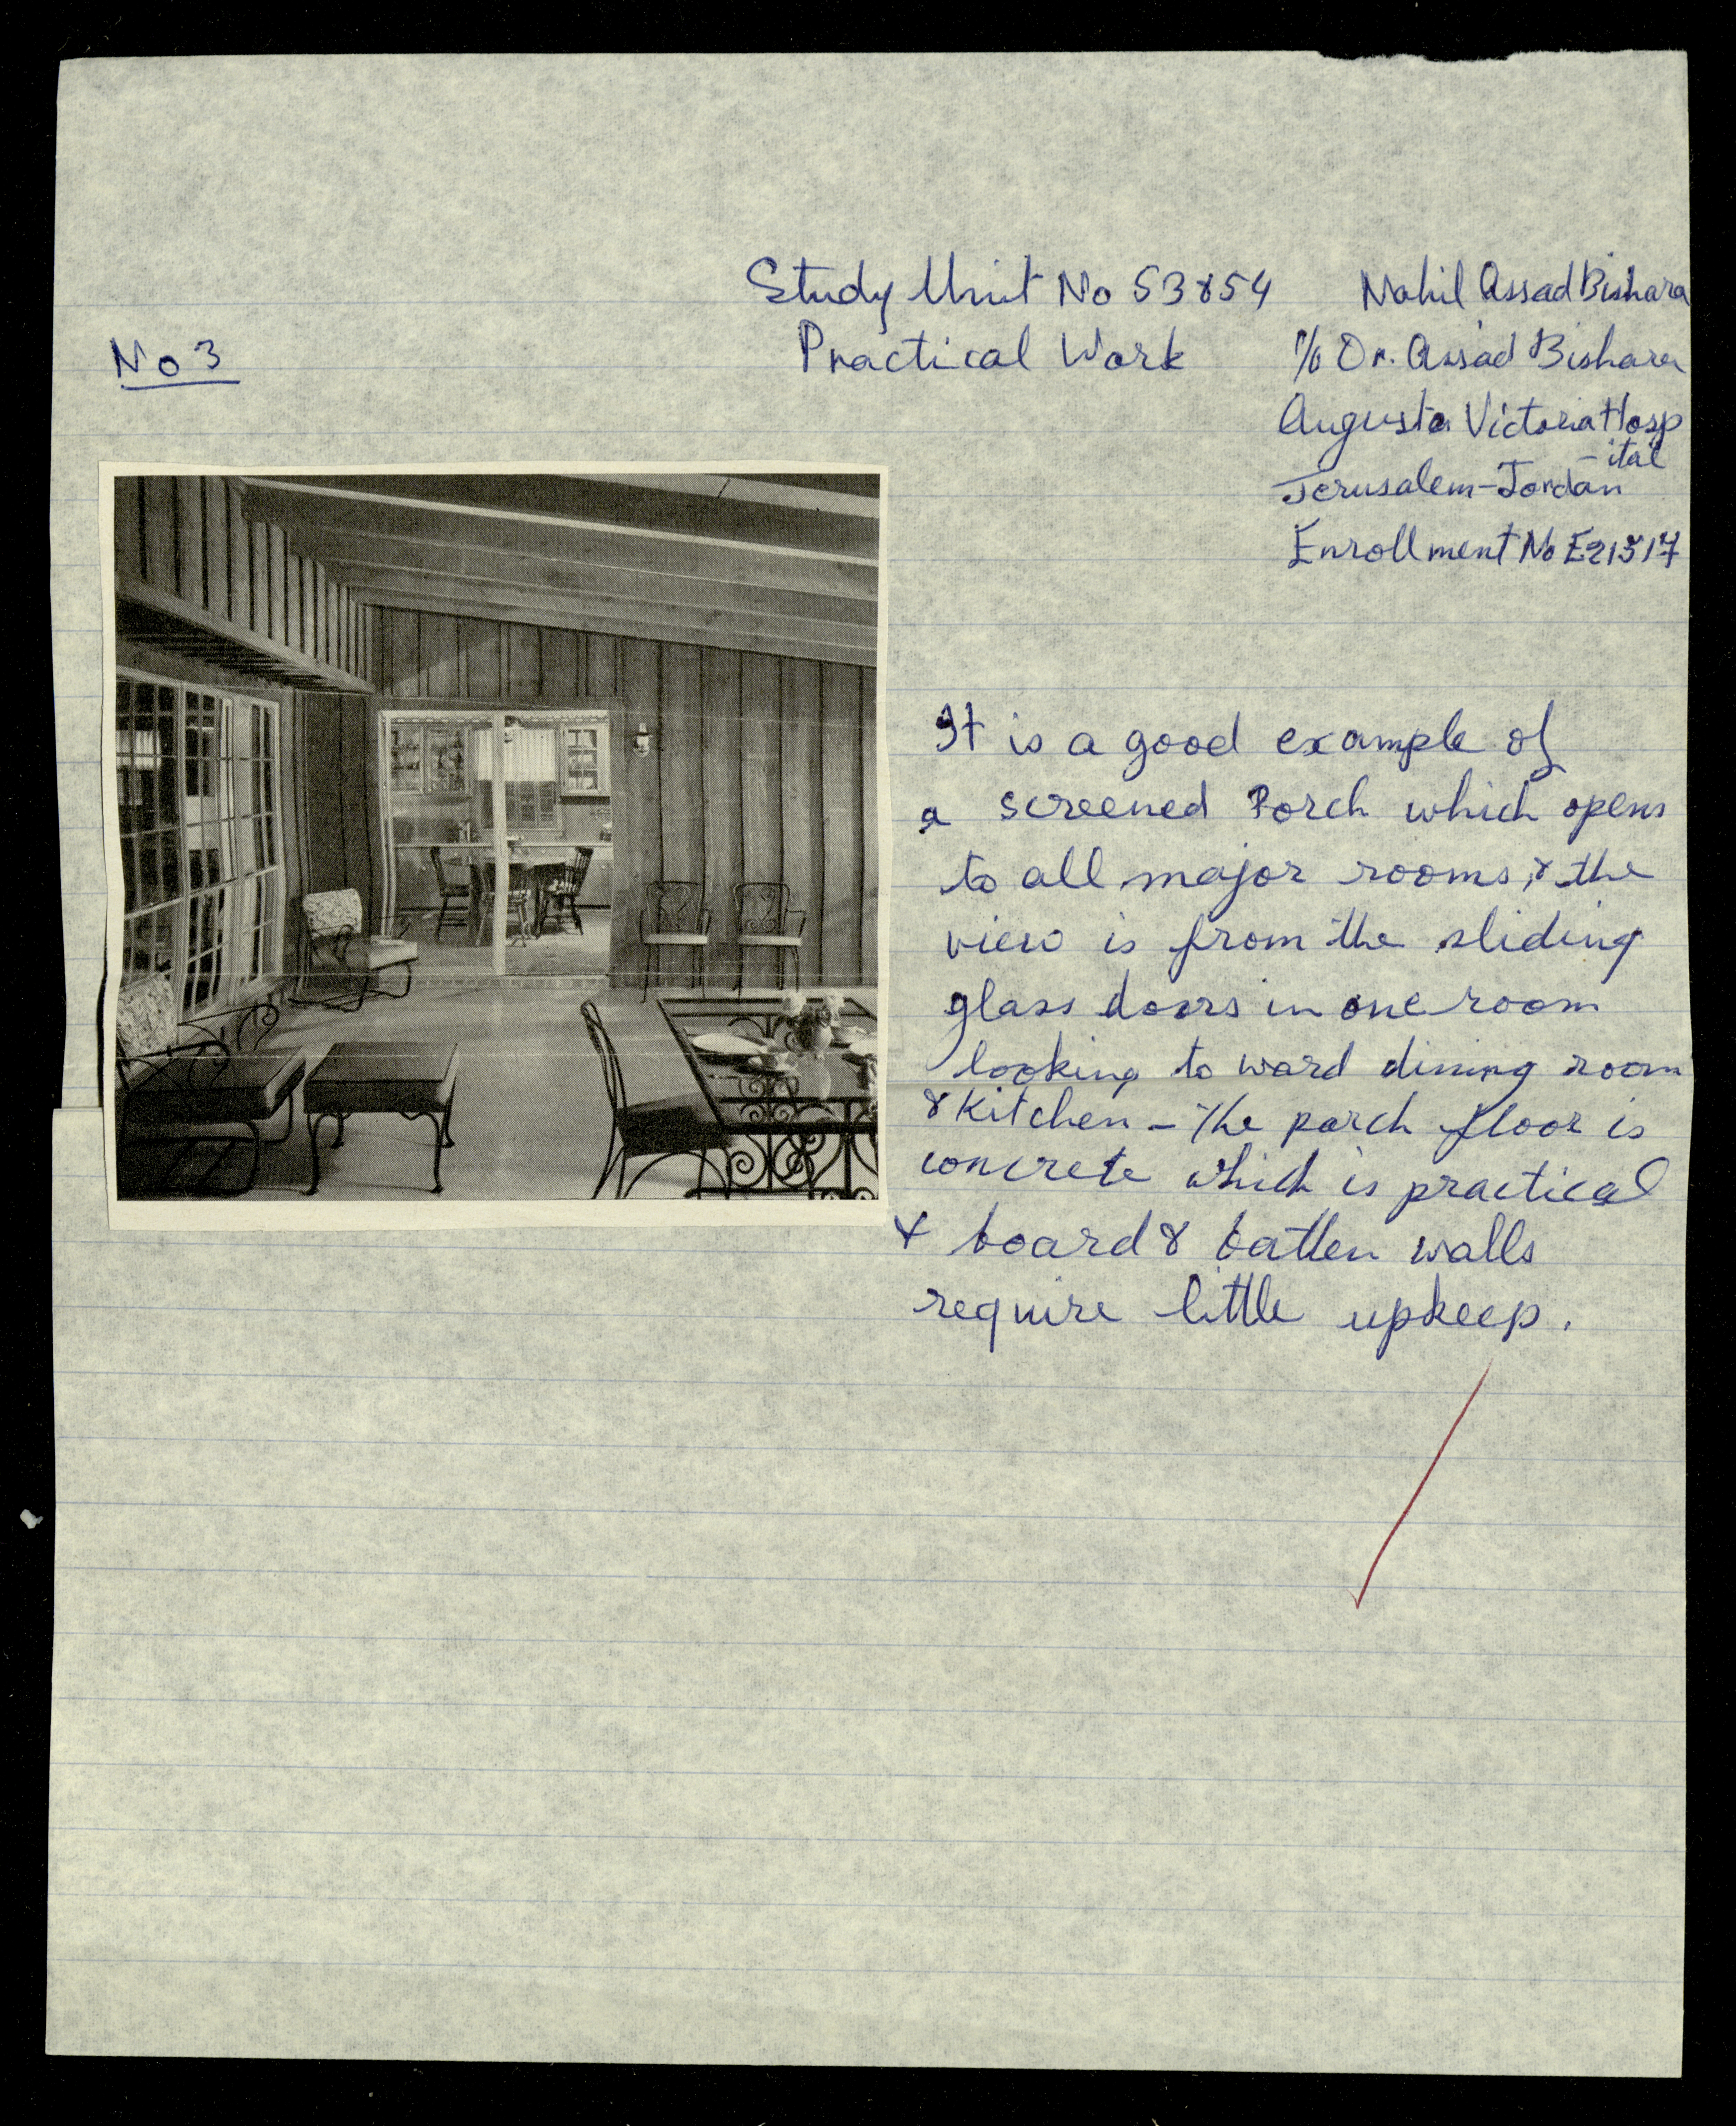 Study Unit No 53854
Practical Work
No 3
Nahil Assad Bishara
c/o Dr. Assad Bishara
Augusta Victoria Hosp
-ital
Jerusalem-Jordan
Enrollment No E21517
It is a good example of
a screened Porch which opens
to all major rooms, & the
view is from the sliding
glass doors in one room
looking to ward dining room
& Kitchen - The porch floor is
concrete which is practical
& board & batten walls
require little upkeep.